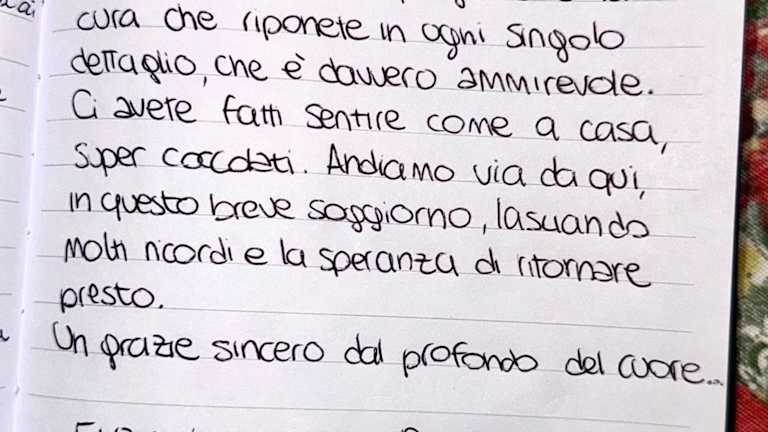 cura che riponete in ogni singolo
dettaglio, che è davvero ammirevole.
Ci avete fatti sentire come a casa,
super coccolati. Andiamo via da qui,
in questo breve soggiorno, lasciando
molti ricordi e la speranza di ritornare
presto.
Un grazie sincero dal profondo del cuore...